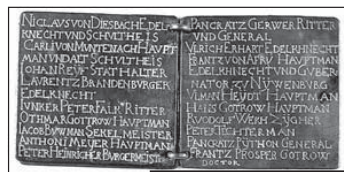 NICLAVS VON DIESBACH EDEL
KNECHT VND SCHVLTHEIS
CARLI VON MONTENACH HAVPT
MAN VND ALT SCHVLTHEIS
IOHAN REYF STATHALTER
LAVRENTZ BRANDENBVRGER
EDELKNECHT
IVNKER PETER FALK RITTER
OTHMAR GOTTROW HAVPTMAN
IACOB BVWMAN SEKELMEISTER
ANTHONI MEIJER HAVPTMAN
PETER HEINRICHER BVRGERMEISTER
PANCRATZ GERWER RITTER
VND GENERAL
VLRICH ERHART EDELKHNECHT
FRANTZ VON AFFRY HAVPTMAN
EDELKHNECHT VND GVBER
NATOR ZV NÜWENBVRG
HEYDT HAVPTMAN
HANS GOTROW HAVPTMAN
RVDOLF WERH ZÜGHER
PETER TECHTERMAN
PANCRATZ PYTHON GENERAL
FRANTZ PROSPER GOTROW
DOCTOR